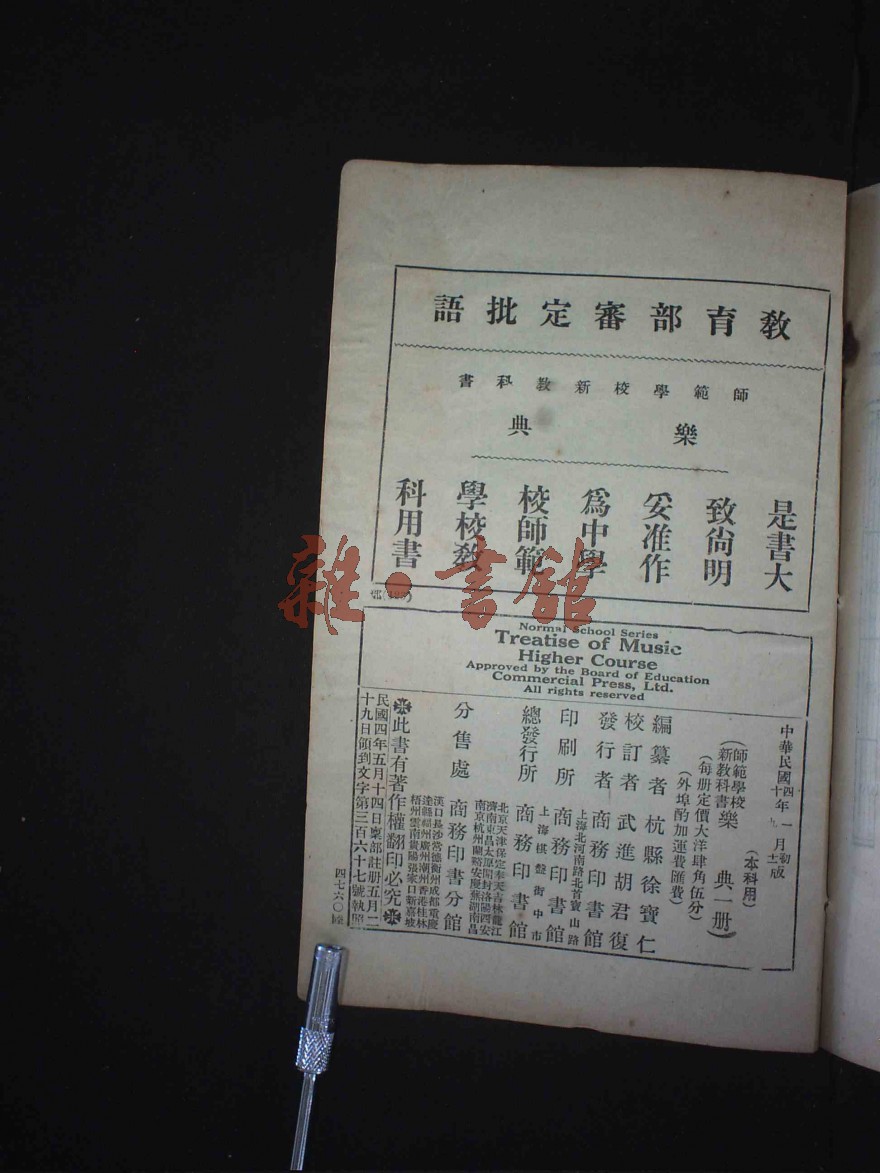 教育部審定批語
師範學校新教科書
樂典
是書大
致尙明
妥准作
爲中學
校師範
學校敎
科用書
雜·書館
Normal School Series
Treatise of Music
Higher Course
Approved by the Board of Education
Commercial Press, Ltd.
All rights reserved
中華民國四年一月初版
(師範學校新敎科書)樂典一册
(本科用)
(每册定價大洋肆角伍分)
(外埠酌加運費匯費)
編纂者 杭縣徐寶仁
校訂者 武進胡君復
發行者 商務印書館
上海北河南路北首寶山路
印刷所 商務印書館
上海棋盤街中市
總發行所 商務印書館
北京天津保定奉天吉林龍江
濟南東昌太原開封洛陽西安
南京杭州蘭谿安慶蕪湖南昌
分售處 商務印書分館
漢口長沙常德衡州成都重慶
達縣福州廣州潮州香港桂林
梧州雲南貴陽張家口新嘉坡
此書有著作權翻印必究
民國四年五月十四日稟部註册五月二
十九日領到文字第三百六十七號執照
四七六〇